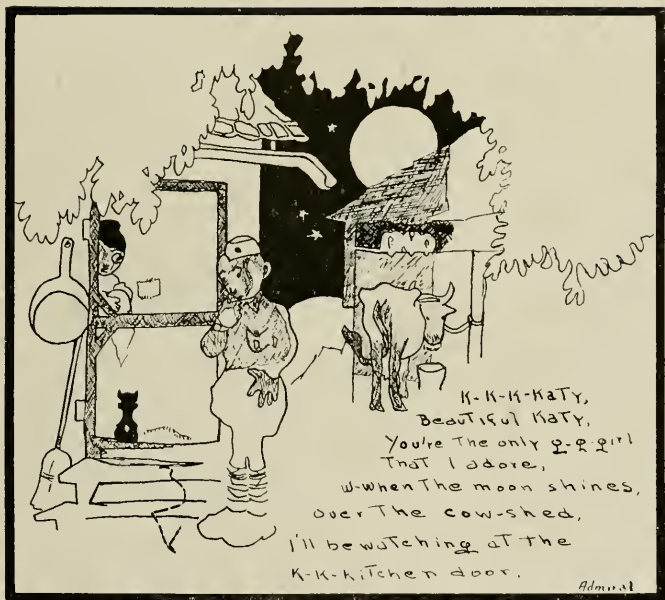 K-K-K-Katy,
Beautiful Katy,
You're the only g-g-girl
That I adore,
W-when the moon shines,
Over the cow-shed,
I'll be watching at the
K-K-Kitchen door.
Admiral